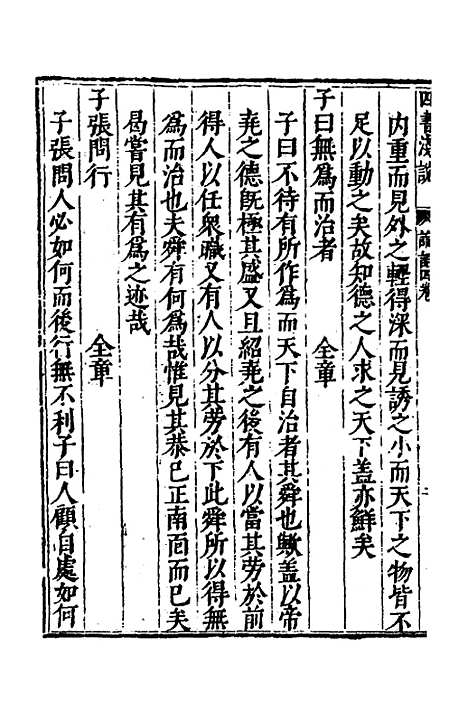 四書淺說
論語
內重而見外之輕得深而見誘之小而天下之物皆不
足以動之矣故知德之人求之天下蓋亦鮮矣
子曰無為而治者　　全章
子曰不待有所作為而天下自治者其舜也歟蓋以帝
堯之德旣極其盛又且紹堯之後有人以當其勞於前
得人以任衆職又有人以分其勞於下此舜所以得無
為而治也夫舜有何為哉惟見其恭已正南面而已矣
曷嘗見其有為之迹哉
子張問行　　全章
子張問人必如何而後行無不利子曰人顧自處如何